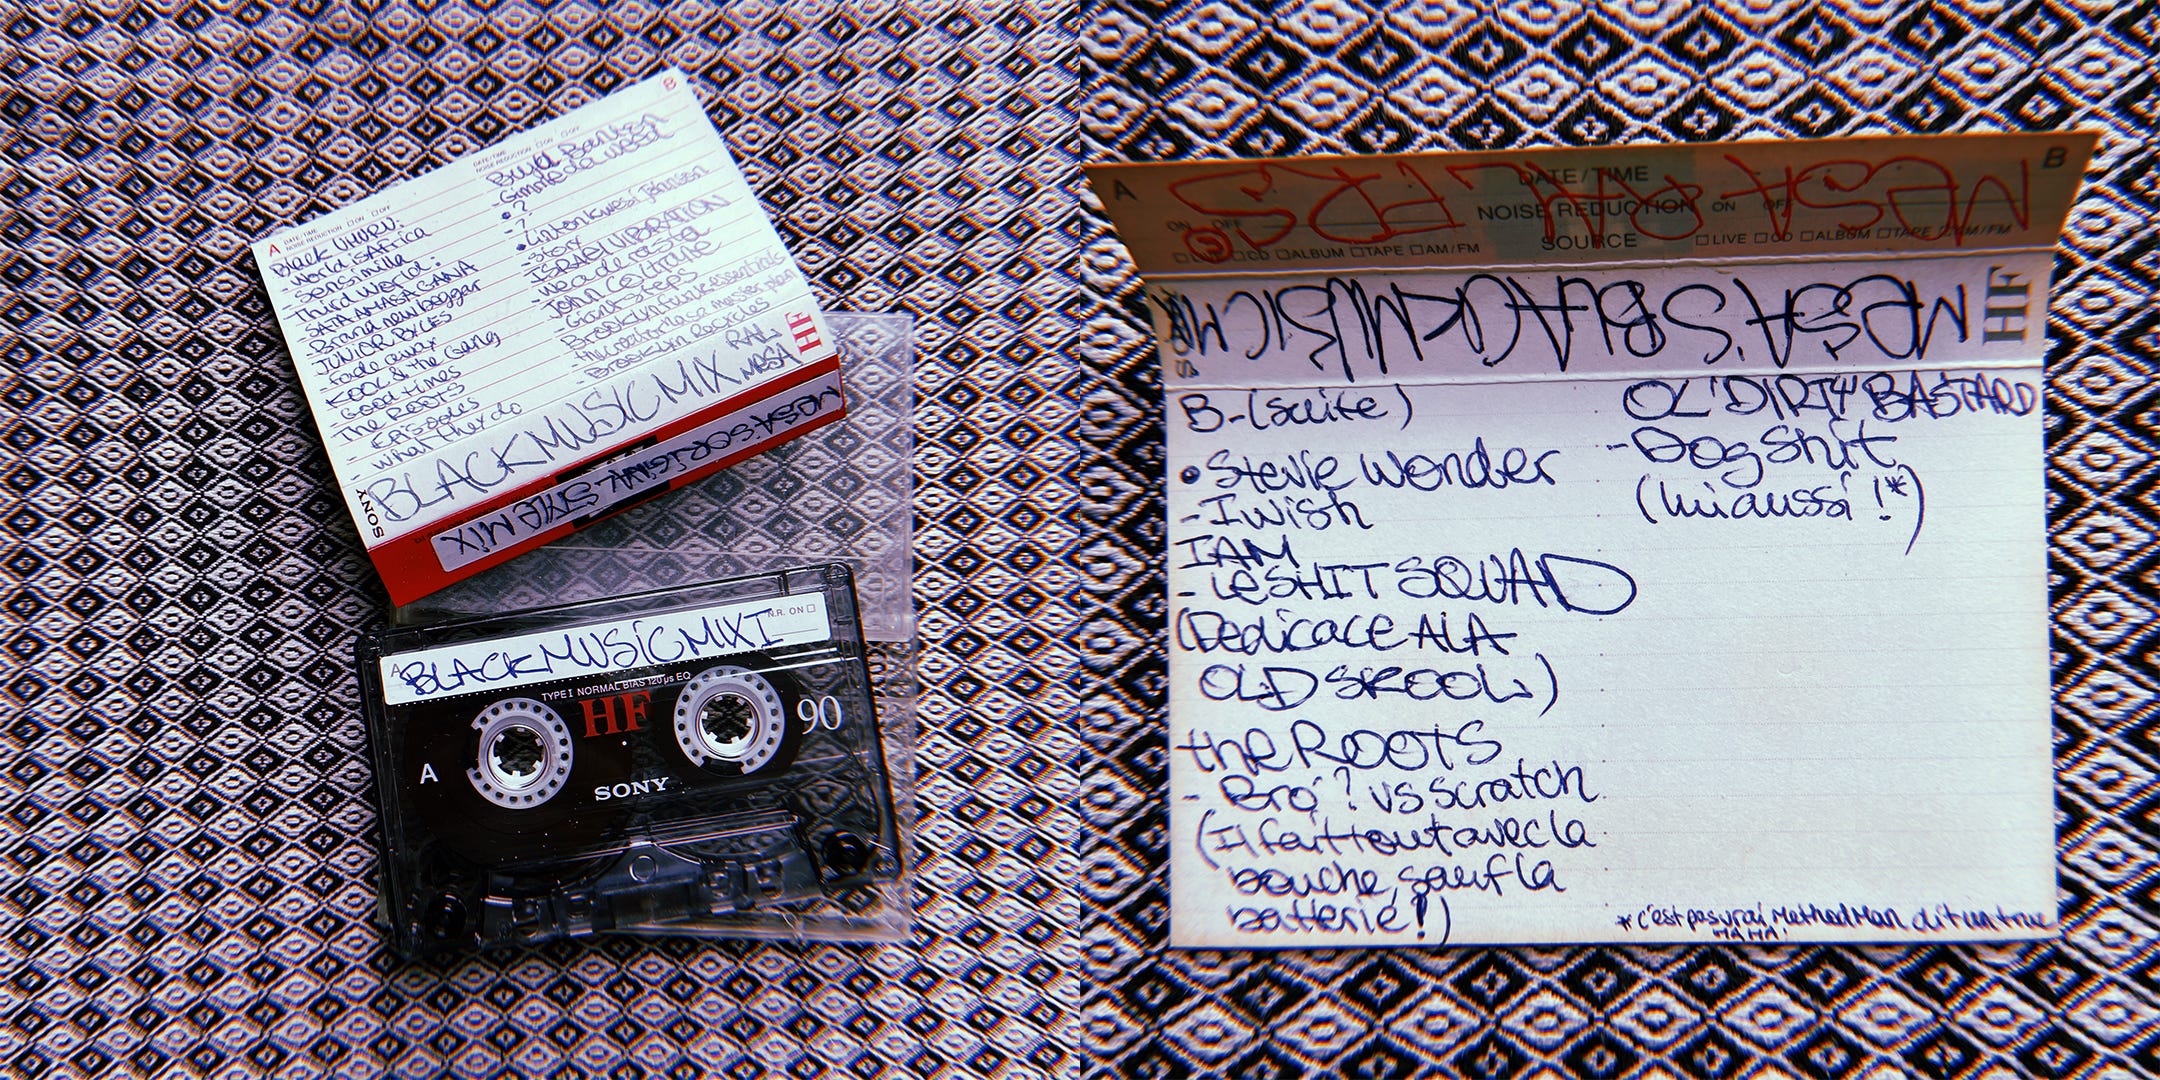 A DATE/TIME NOISE REDUCTION ☐ ON ☐ OFF
Black UHURU:
- World is Africa
- Sensimilla
Third World:
- SATA AMASA GANA
- Brand new beggar
JUNIOR BYLES
- fade away
Kool & the Gang
- Good times
The ROOTS
- Episodes
- what they do
DATE/TIME B
NOISE REDUCTION ☐ ON ☐ OFF
Buju Banton
- Gimme da weed
• ?
- ?
• Linton kwesi Johnson
- story
ISRAEL VIBRATION
- we a de rasta
John Coltrane
- Giant steps
Brooklyn funk essentials
- the creator has a master plan
- Brooklyn Recycles
SONY
BLACK MUSIC MIX
HF
MESA'S ORIGINAL STYLE MIX
A BLACK MUSIC MIX I
N.R. ON ☐
TYPE I NORMAL BIAS 120 µs EQ
HF
90
A
SONY
A DATE/TIME B
NOISE REDUCTION ON OFF
ON OFF
SOURCE
CD ☐ ALBUM ☐ TAPE ☐ AM/FM
☐ LIVE ☐ CD ☐ ALBUM ☐ TAPE ☐ AM/FM
MESA'S BLACK MUSIC MIX
HF
B-(suite)
• Stevie Wonder
- I wish
IAM
- LE SHIT SQUAD
(Dedicace A LA
OLD SKOOL)
the ROOTS
- Bro' ? vs scratch
(Il fait tout avec la
bouche, sauf la
batterie !)
OL' DIRTY BASTARD
- Dog Shit
(lui aussi !*)
* c'est pas vrai Method Man dit un truc
HAHA!